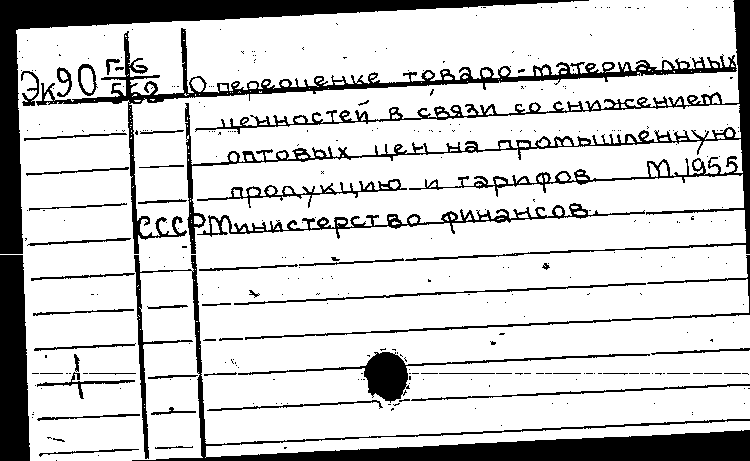 Эк90 Г-6/562 О переоценке товаро-материальных
ценностей в связи со снижением
оптовых цен на промышленную
продукцию и тарифов. М., 1955
СССР. Министерство финансов.
1